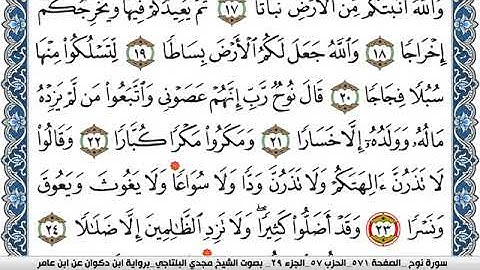 وَٱللَّهُ أَنۢبَتَكُم مِّنَ ٱلۡأَرۡضِ نَبَاتٗا ١٧ ثُمَّ يُعِيدُكُمۡ فِيهَا وَيُخۡرِجُكُمۡ
إِخۡرَاجٗا ١٨ وَٱللَّهُ جَعَلَ لَكُمُ ٱلۡأَرۡضَ بِسَاطٗا ١٩ لِّتَسۡلُكُواْ مِنۡهَا
سُبُلٗا فِجَاجٗا ٢٠ قَالَ نُوحٞ رَّبِّ إِنَّهُمۡ عَصَوۡنِي وَٱتَّبَعُواْ مَن لَّمۡ يَزِدۡهُ
مَالُهُۥ وَوَلَدُهُۥٓ إِلَّا خَسَارٗا ٢١ وَمَكَرُواْ مَكۡرٗا كُبَّارٗا ٢٢ وَقَالُواْ
لَا تَذَرُنَّ ءَالِهَتَكُمۡ وَلَا تَذَرُنَّ وَدّٗا وَلَا سُوَاعٗا وَلَا يَغُوثَ وَيَعُوقَ
وَنَسۡرٗا ٢٣ وَقَدۡ أَضَلُّواْ كَثِيرٗاۖ وَلَا تَزِدِ ٱلظَّٰلِمِينَ إِلَّا ضَلَٰلٗا ٢٤
سورة نوح _الصفحة ٥٧١_ الحزب ٥٧_الجزء ٢٩_ بصوت الشيخ مجدي البلتاجي_برواية ابن دكوان عن ابن عامر